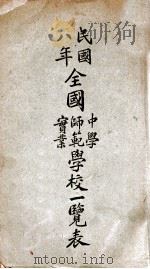 民國
年全國中學師範實業學校一覽表